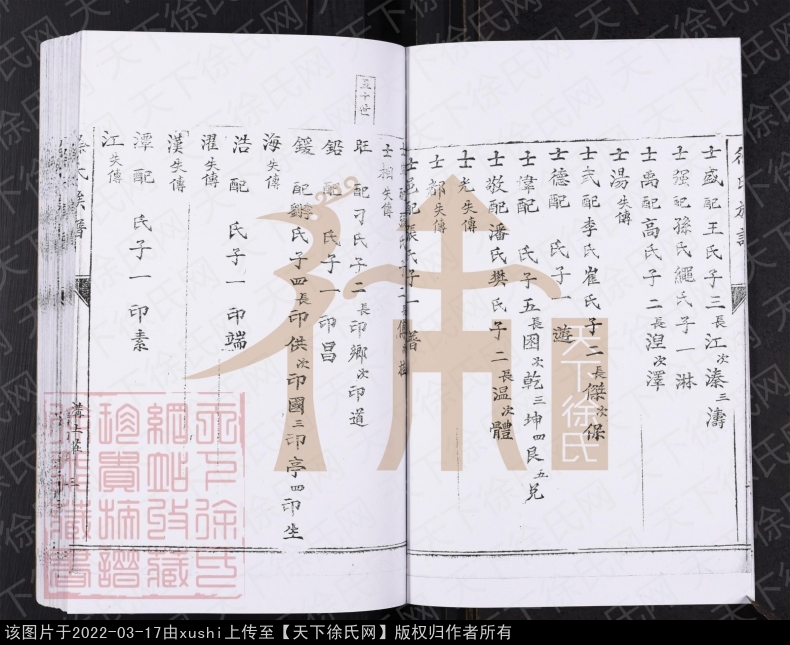 士盛配王氏子三長江次溱三濤
士强配孫氏繩氏子一淋
士禹配高氏子二長湼次澤
士湯失傳
士武配李氏崔氏子二長傑次保
士德配 氏子一遊
士偉配 氏子五長囦次乾三坤四艮五兌
士敬配潘氏樊氏子二長温次體
士光失傳
士都失傳
士邑配張氏子一
士相失傳
五十世
旺配刁氏子二長印鄉次印道
鉛配 氏子一印昌
鍰配 氏子四長印供次印國三印亭四印坐
海失傳
浩配 氏子一印端
濯失傳
漢失傳
潭配 氏子一印素
江失傳
氏族譜
天下徐氏
该图片于2022-03-17由xushi上传至【天下徐氏网】版权归作者所有